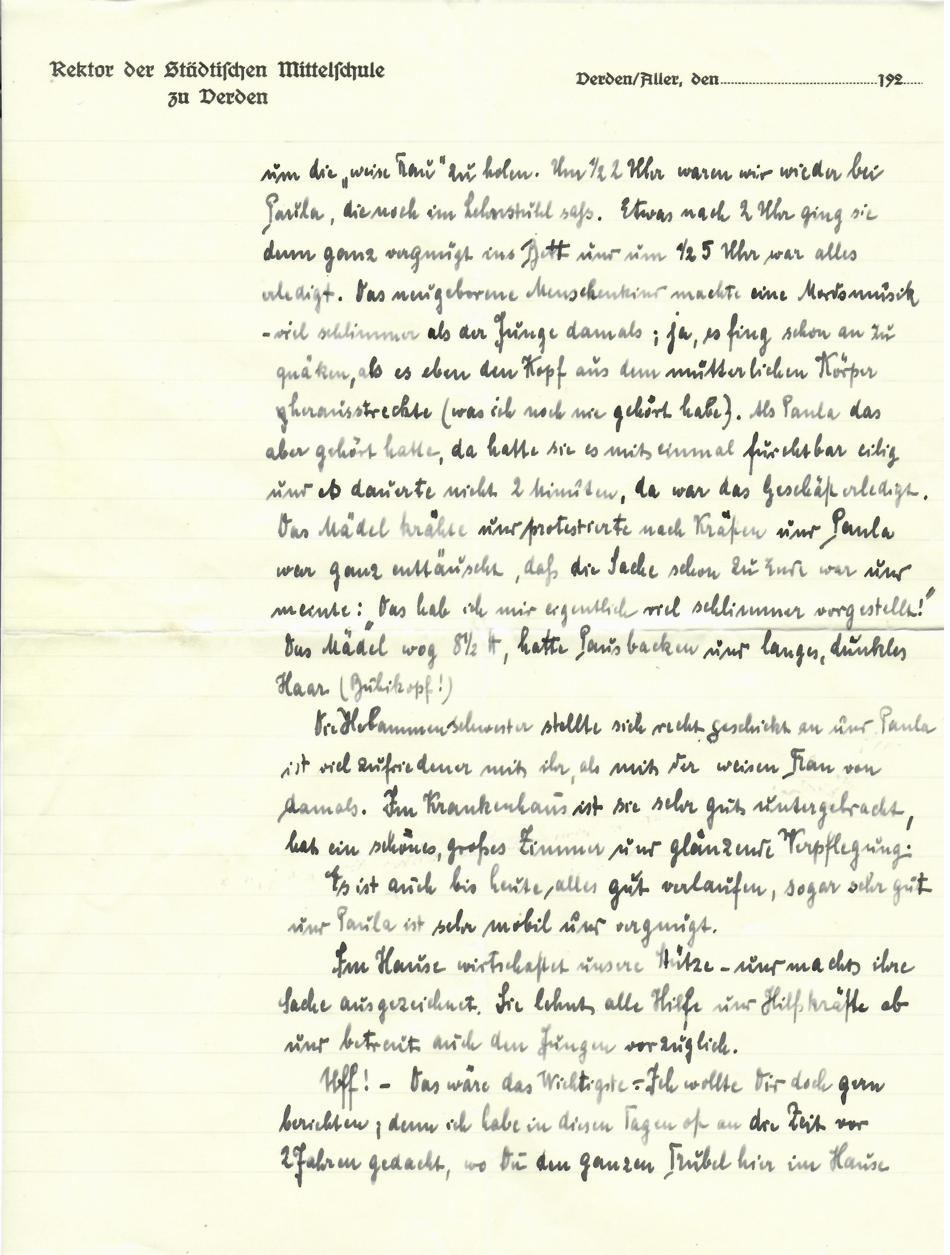 Rektor der Städtischen Mittelschule
zu Verden
Verden/Aller, den 192
um die „weise Frau" zu holen. Um ½2 Uhr waren wir wieder bei
Paula, die noch im Lehnstuhl saß. Etwas nach 2 Uhr ging sie
denn ganz vergnügt ins Bett und um ½5 Uhr war alles
erledigt. Das neugeborene Menschenkind machte eine Mordsmusik
– viel schlimmer als der Junge damals; ja, es fing schon an zu
quäken, als es eben den Kopf aus dem mütterlichen Körper
herausstreckte (was ich noch nie gehört habe). Als Paula das
aber gehört hatte, da hatte sie es mit einmal furchtbar eilig
und es dauerte nicht 2 Minuten, da war das Geschäft erledigt.
Das Mädel krähte und protestierte nach Kräften und Paula
war ganz enttäuscht, daß die Sache schon zu Ende war und
meinte: Das hab ich mir eigentlich viel schlimmer vorgestellt!"
Das Mädel wog 8½ ℔, hatte Pausbacken und langes, dunkles
Haar (Bubikopf!)
Die Hebammenschwester stellte sich recht geschickt an und Paula
ist viel zufriedener mit ihr, als mit der weisen Frau von
damals. Im Krankenhaus ist sie sehr gut untergebracht,
hat ein schönes, großes Zimmer und glänzende Verpflegung.
Es ist auch bis heute alles gut verlaufen, sogar sehr gut
und Paula ist sehr mobil und vergnügt.
Im Hause wirtschaftet unsere Stütze – und macht ihre
Sache ausgezeichnet. Sie lehnt alle Hilfe und Hilfskräfte ab
und betreut auch den Jungen vorzüglich.
Uff! – Das wäre das Wichtigste. – Ich wollte Dir doch gern
berichten; denn ich habe in diesen Tagen oft an die Zeit vor
2 Jahren gedacht, wo Du den ganzen Trubel hier im Hause